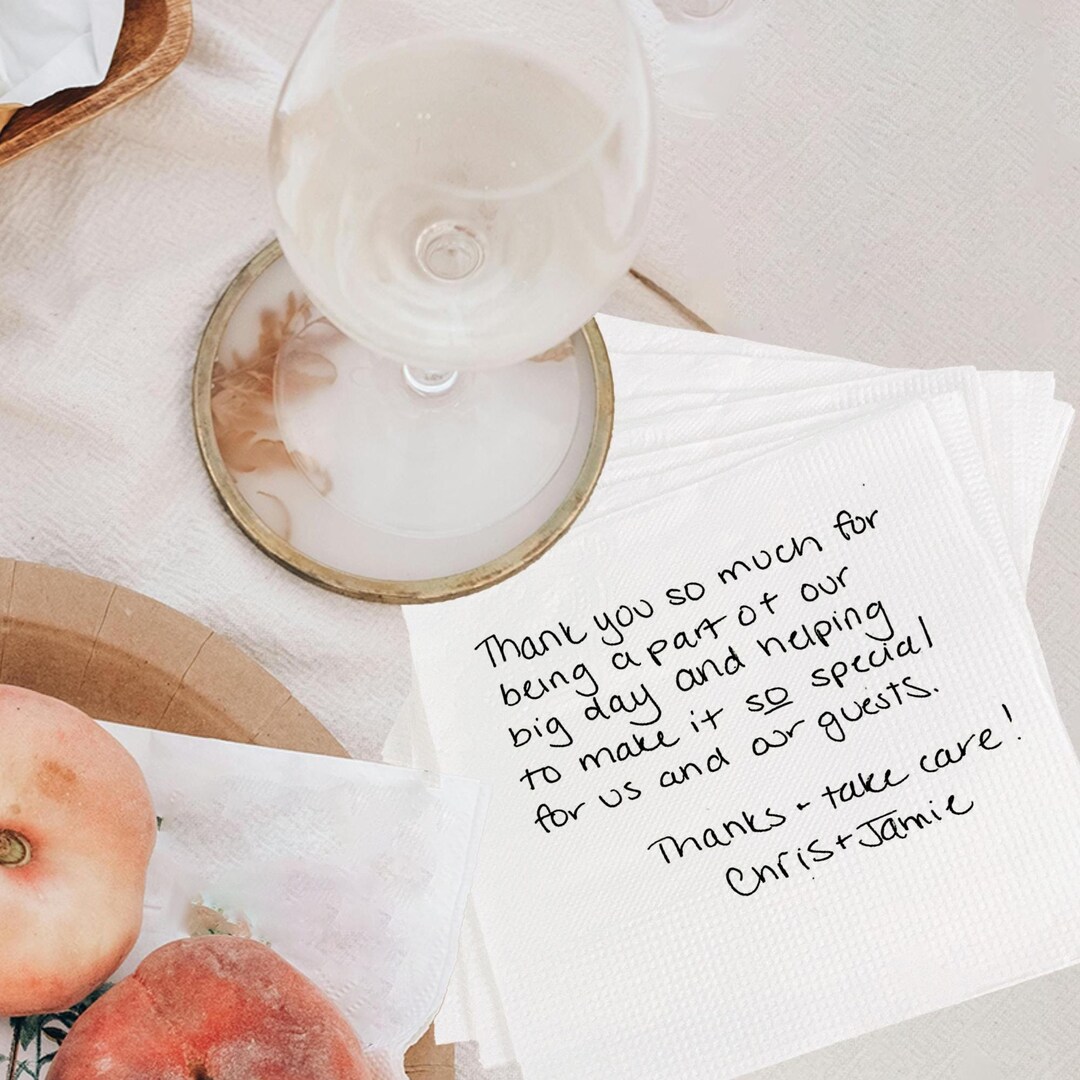 Thank you so much for
being a part of our
big day and helping
to make it so special
for us and our guests.
Thanks + take care!
Chris + Jamie